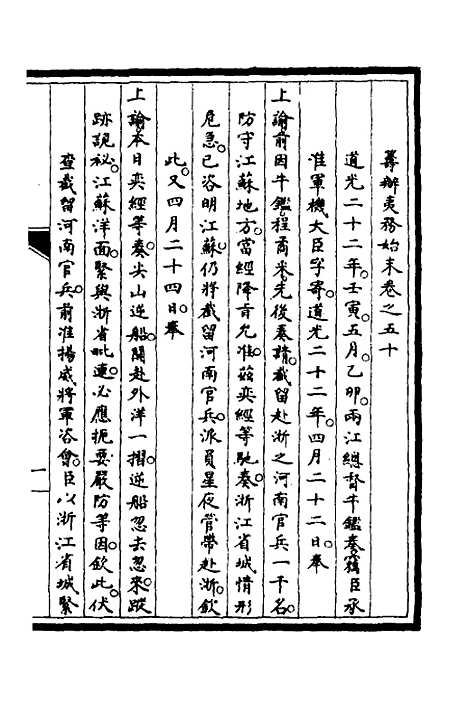 籌辦夷務始末卷之五十
道光二十二年。壬寅。五月。乙卯。兩江總督牛鑑奏。竊臣承
准軍機大臣字寄。道光二十二年。四月二十二日。奉
上諭。前因牛鑑程矞采先後奏請。截留赴浙之河南官兵一千名。
防守江蘇地方。當經降旨允准。茲奕經等馳奏。浙江省城情形
危急。已咨明江蘇。仍將截留河南官兵。派員星夜管帶赴浙。欽
此。又四月二十四日。奉
上諭。本日奕經等奏。尖山逆船。開赴外洋一摺。逆船忽去忽來。蹤
跡詭秘。江蘇洋面。緊與浙省毗連。必應扼要嚴防等因。欽此。伏
查截留河南官兵。前准揚威將軍咨會。臣以浙江省城緊
一